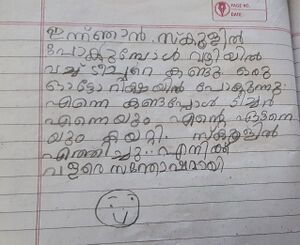 PAGE NO.
DATE:
ഇന്ന് ഞാൻ. സ്കൂളിൽ
പോകുമ്പോൾ വഴിയിൽ
വച്ച് ടീച്ചറെ കണ്ടു. ഒരു
ഓട്ടോ റിക്ഷയിൽ പോകുന്നു.
എന്നെ കണ്ടപ്പോൾ ടീച്ചർ
എന്നെയും എന്റെ
യും കയറ്റി. സ്കൂളിൽ
എത്തിച്ചു. എനിക്ക്
വളരെ സന്തോഷമായി